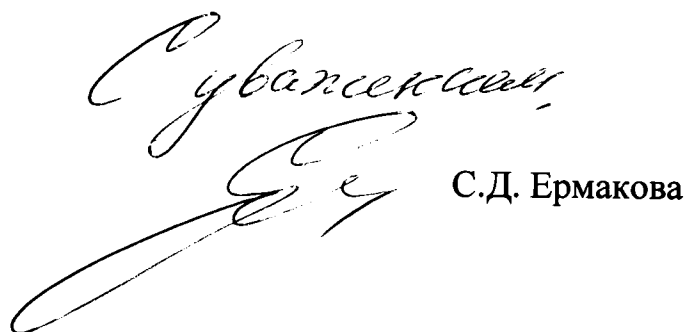 С уважением,
С.Д. Ермакова